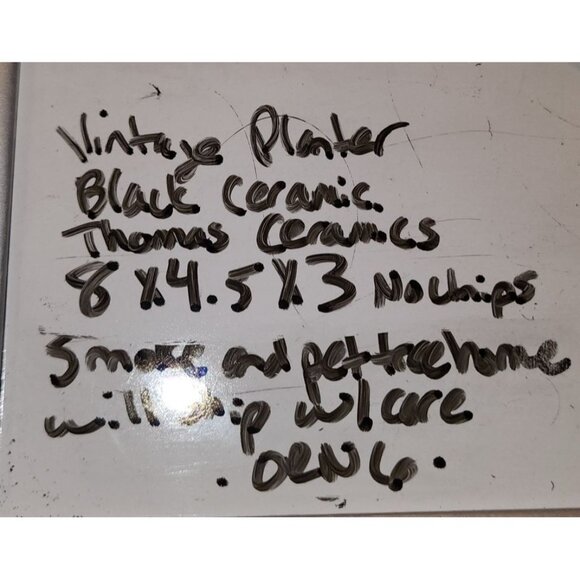 Vintage Planter
Black Ceramic
Thomas Ceramics
8 X 4.5 X 3 No chips
Smoke and pet free home
will ship w/ care
. ORN6 .